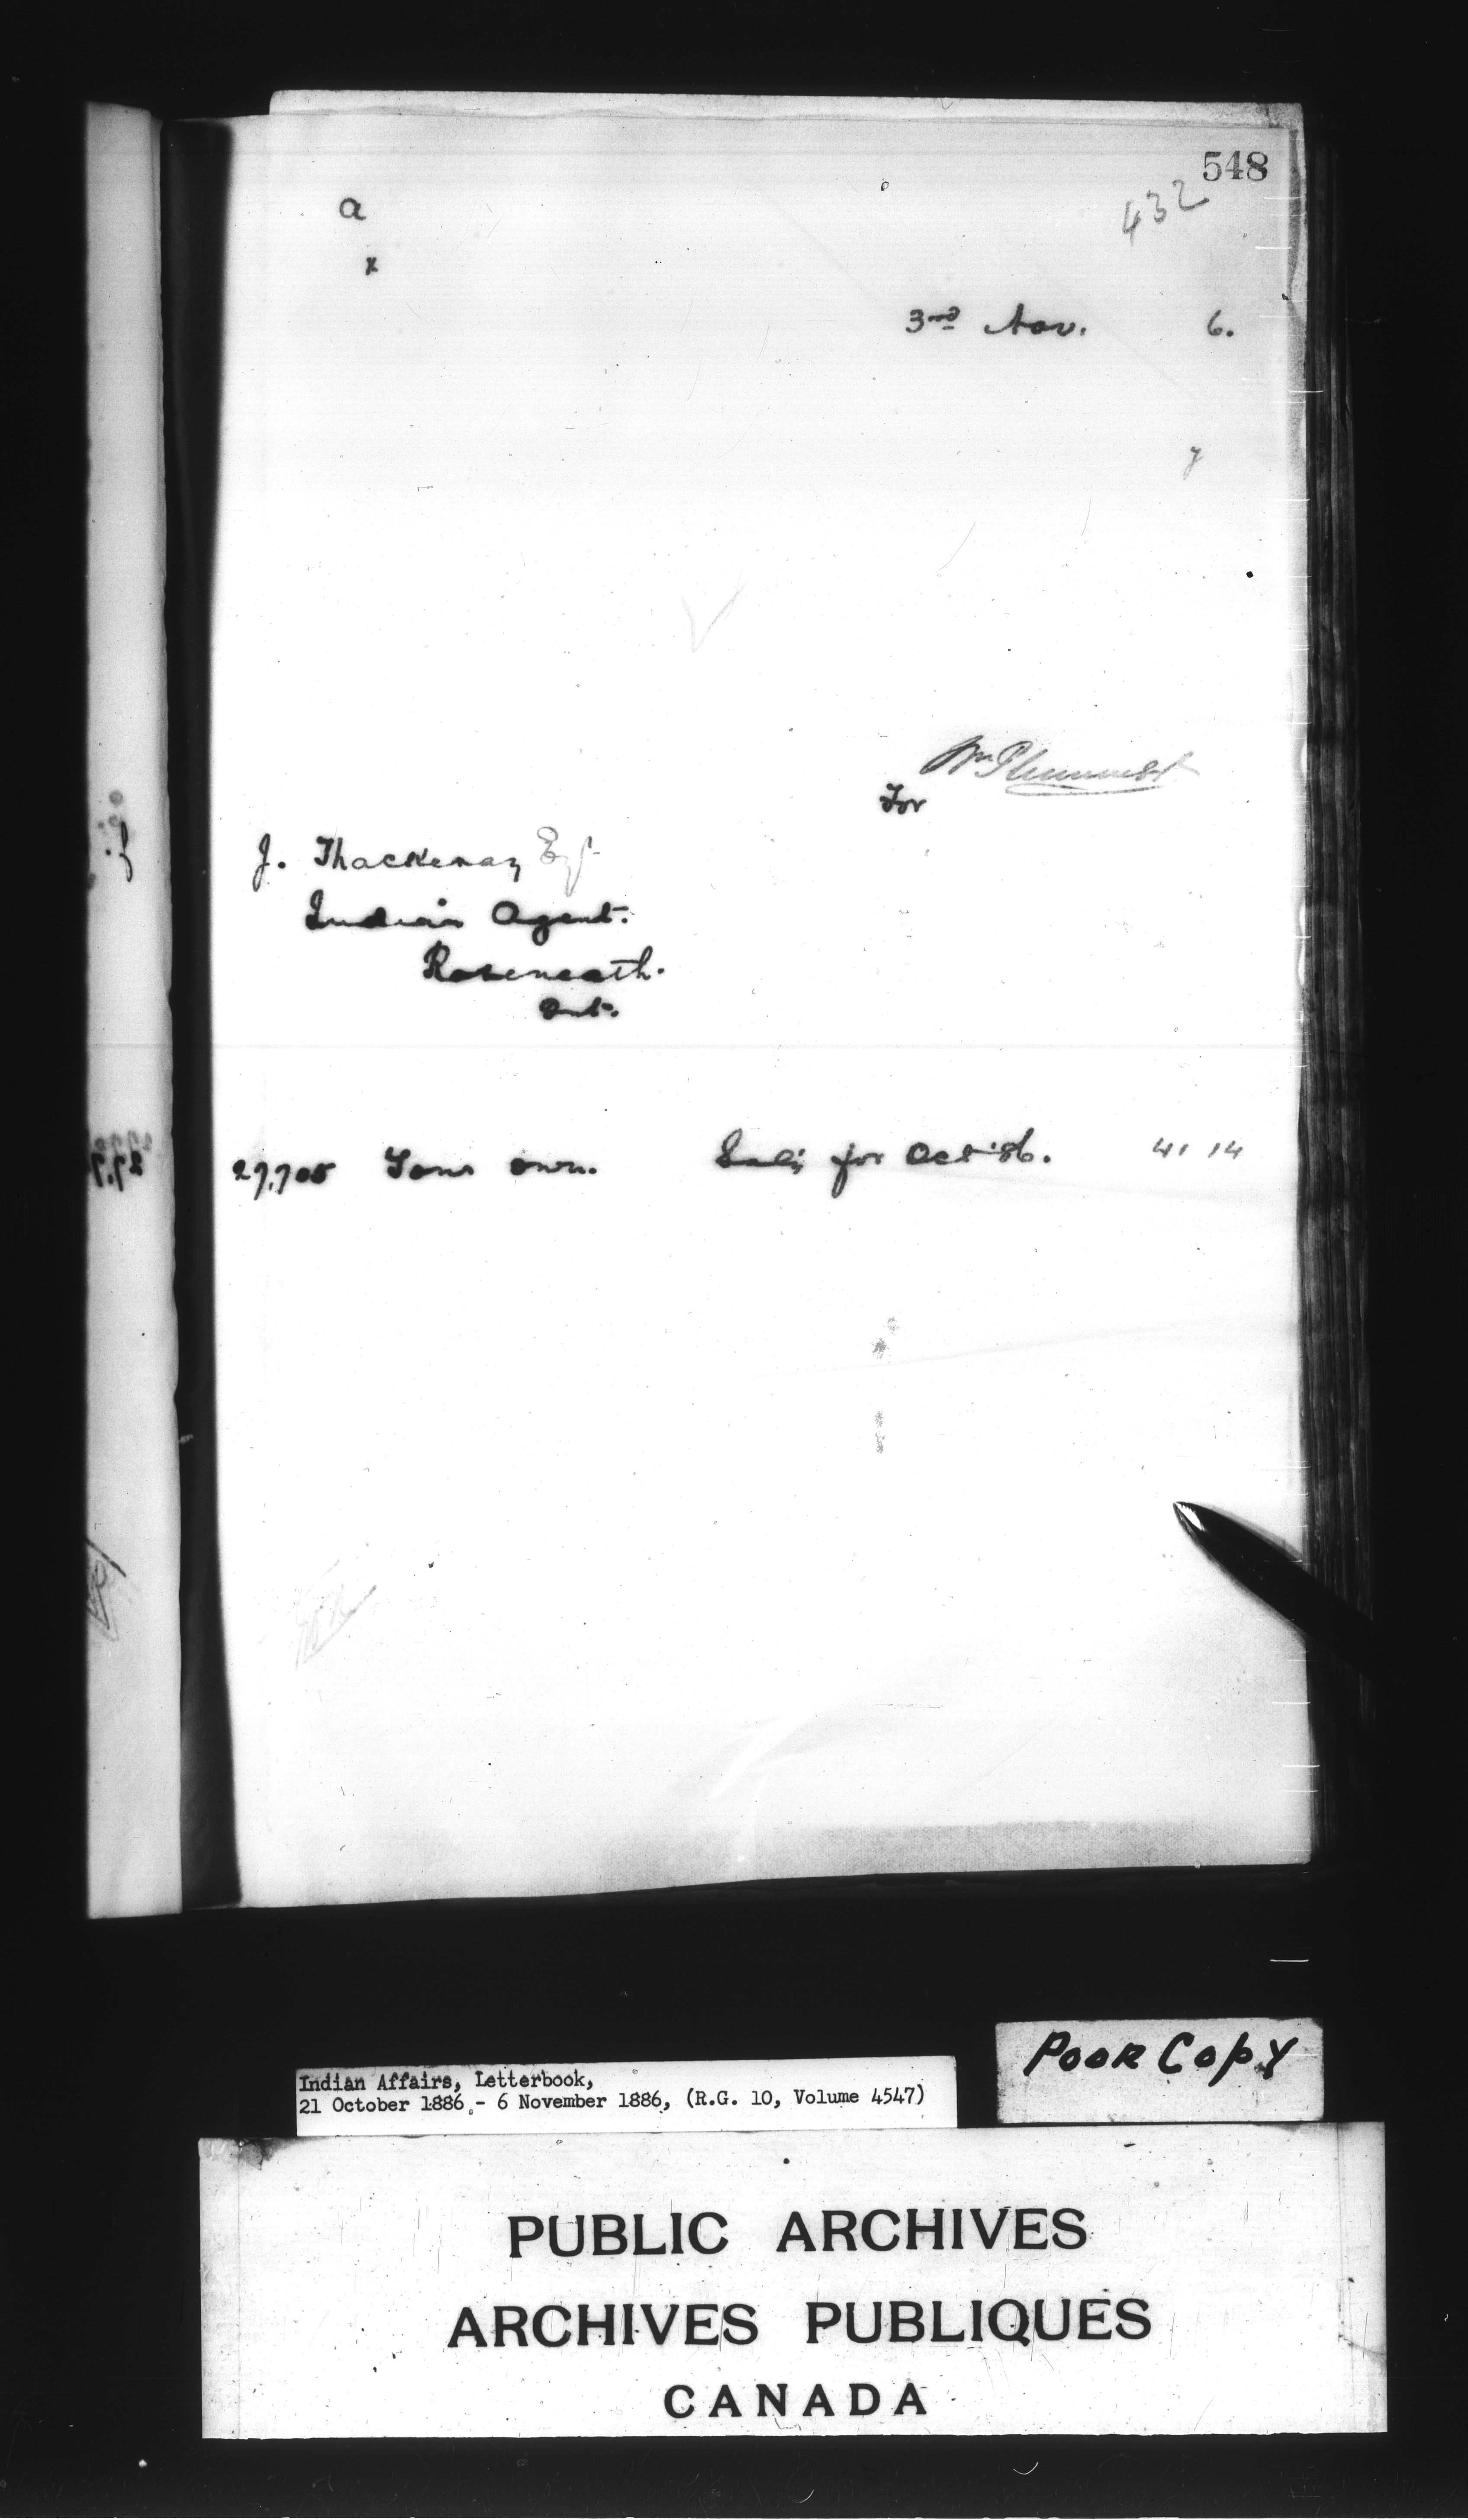 548
432
a
x
3rd Nov. 6.
Wm Plummer
For
J. Thackeray Esq
Indian Agent.
Roseneath.
Ont.
27,705 Your own. Sal'y for Oct '86. 41 14
Poor Copy
Indian Affairs, Letterbook,
21 October 1886 - 6 November 1886, (R.G. 10, Volume 4547)
PUBLIC ARCHIVES
ARCHIVES PUBLIQUES
CANADA